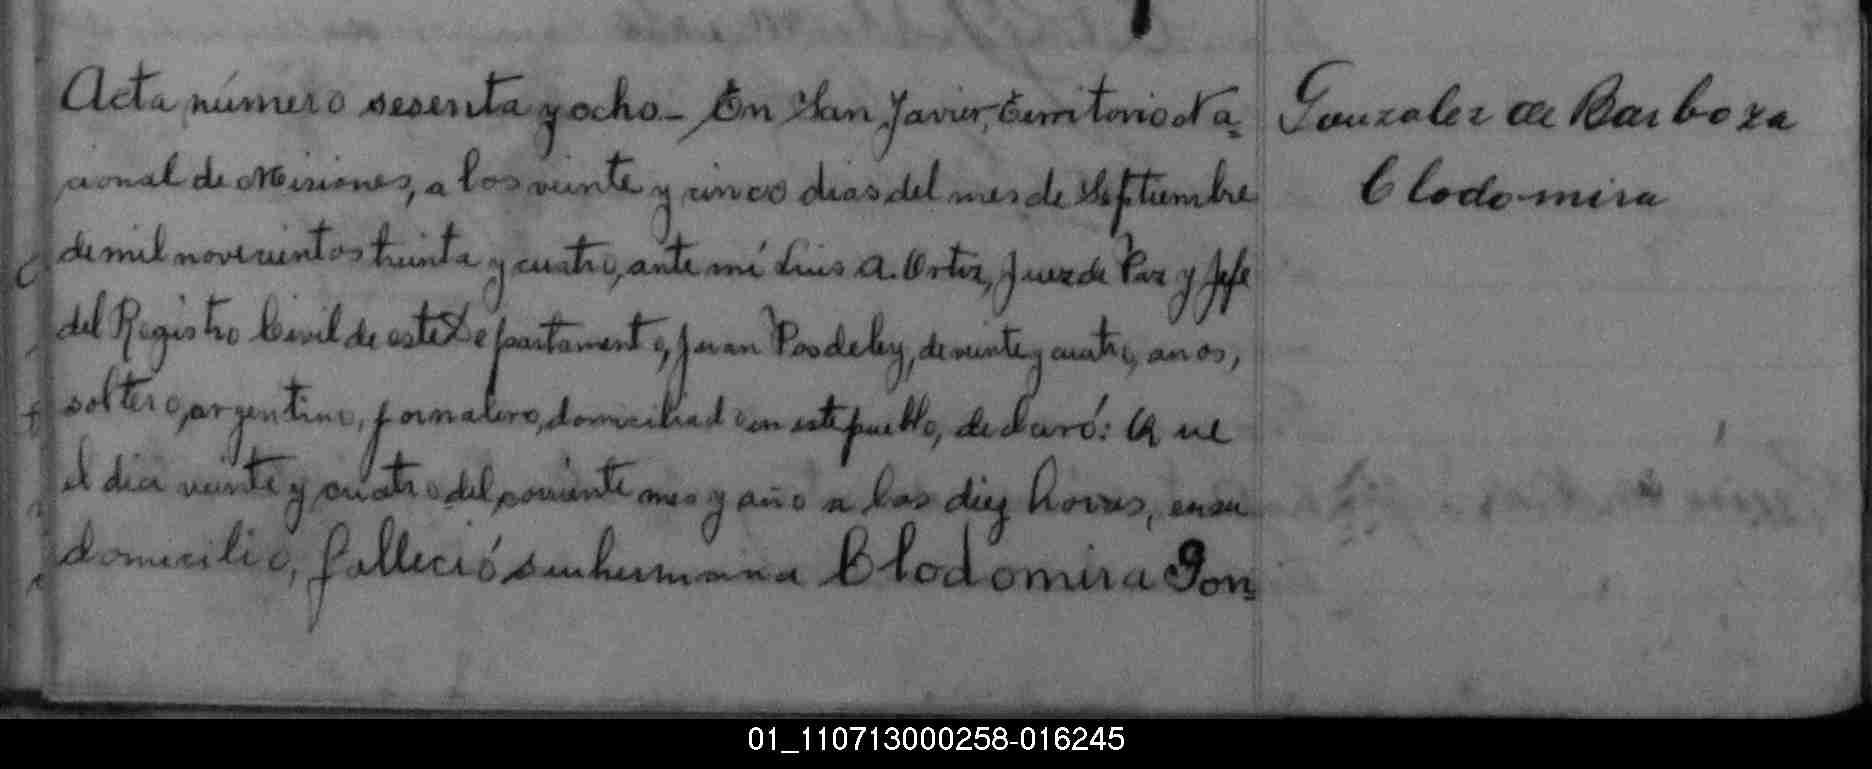 Acta número sesenta y ocho - En San Javier, Territorio Na=
cional de Misiones, a los veinte y cinco dias del mes de Septiembre
de mil novecientos treinta y cuatro, ante mí Luis A. Ortiz, Juez de Paz y Jefe
del Registro Civil de este Departamento, Juan Posdeley, de veinte y cuatro, anos,
soltero, argentino, jornalero, domiciliado en este pueblo, declaró: Que
el dia veinte y cuatro del corriente mes y año a las diez horas, en su
domicilio, falleció su hermana Clodomira Gon=
Gonzalez de Barboza
Clodomira
01_110713000258-016245